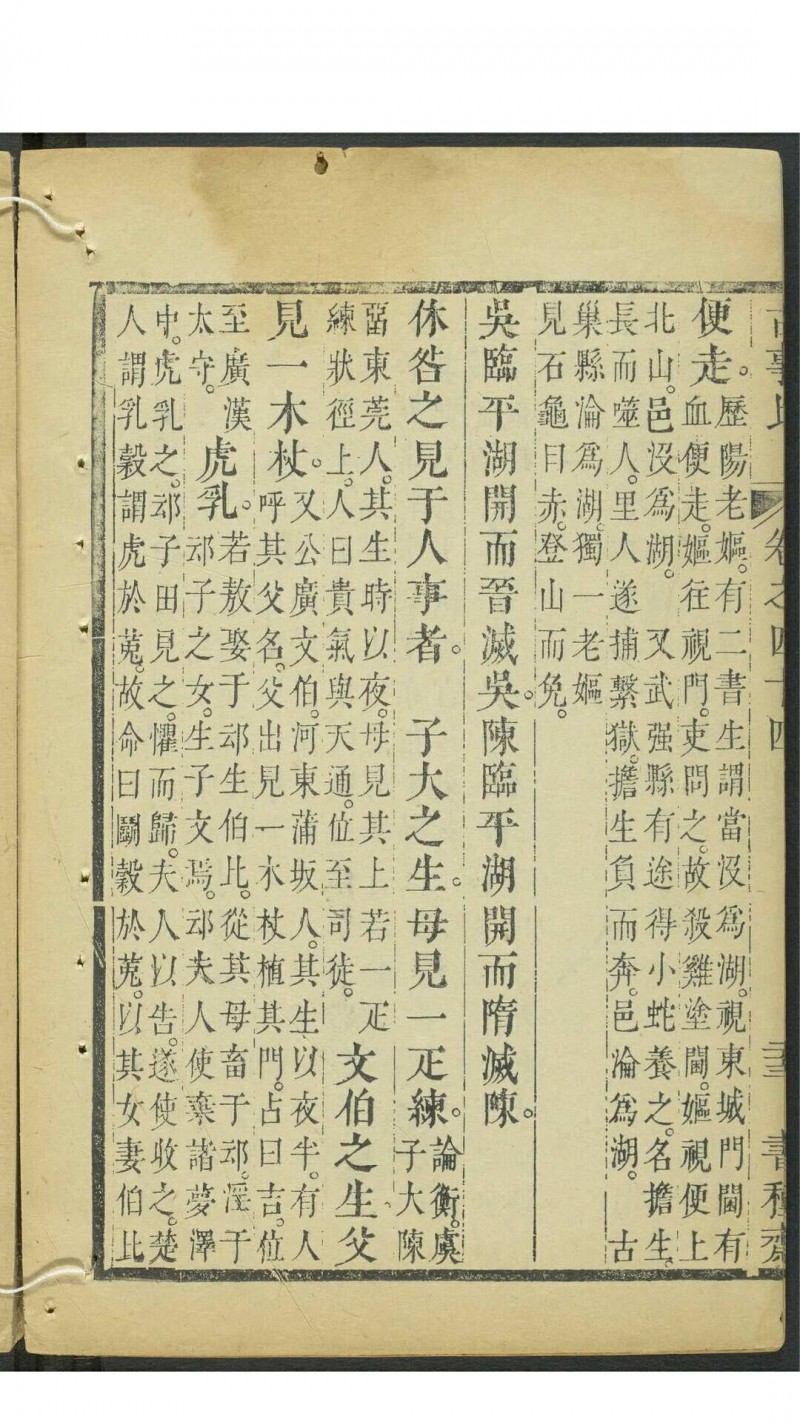 古事比 卷之四十四 書種齋
便走。歷陽老嫗。有二書生謂當沒爲湖。視東城門閫有
血便走。嫗往視門。吏問之。故殺雞塗閫。嫗視便上
北山。邑沒爲湖。 又武强縣有途得小蛇養之。名擔生。
長而噬人。里人遂捕繫獄。擔生負而奔。邑淪爲湖。 古
巢縣淪爲湖。獨一老嫗
見石龜目赤。登山而免。
吳臨平湖開而晉滅吳。陳臨平湖開而隋滅陳。
休咎之見于人事者。 子大之生。母見一疋練。論衡。虞
子大陳
畱東莞人。其生時以夜。母見其上若一疋
練狀徑上。人曰貴氣與天通。位至司徒。文伯之生父
見一木杖。又公廣文伯。河東蒲坂人。其生以夜半。有人
呼其父名。父出見一木杖植其門。占曰吉。位
至廣漢
太守。虎乳。若敖娶于䢵生伯比。從其母畜于䢵。淫于
䢵子之女。生子文焉。䢵夫人使棄諸夢澤
中。虎乳之。䢵子田見之。懼而歸。夫人以告。遂使收之。楚
人謂乳穀謂虎於菟。故命曰鬭穀於菟。以其女妻伯比